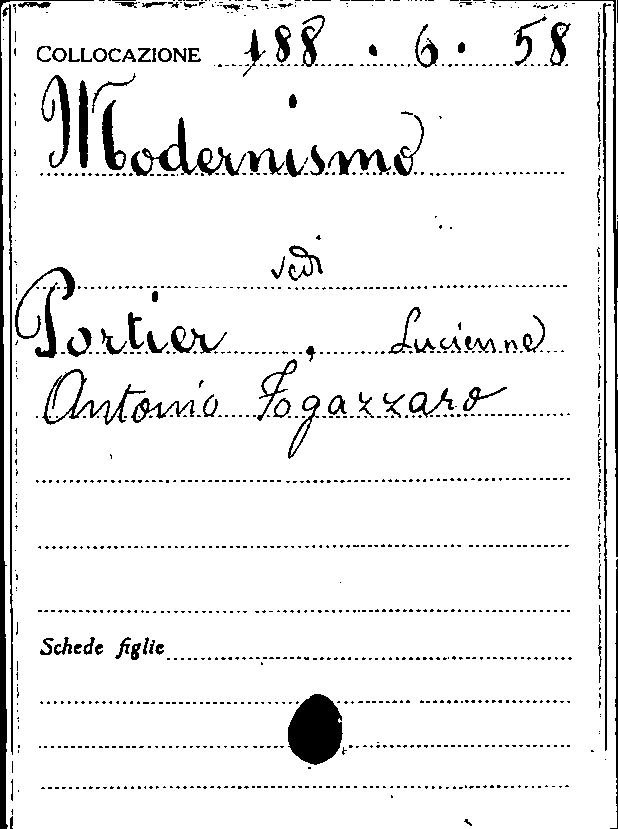 COLLOCAZIONE 188 . 6 . 58
Modernismo
vedi
Portier , Lucienne
Antonio Fogazzaro
Schede figlie